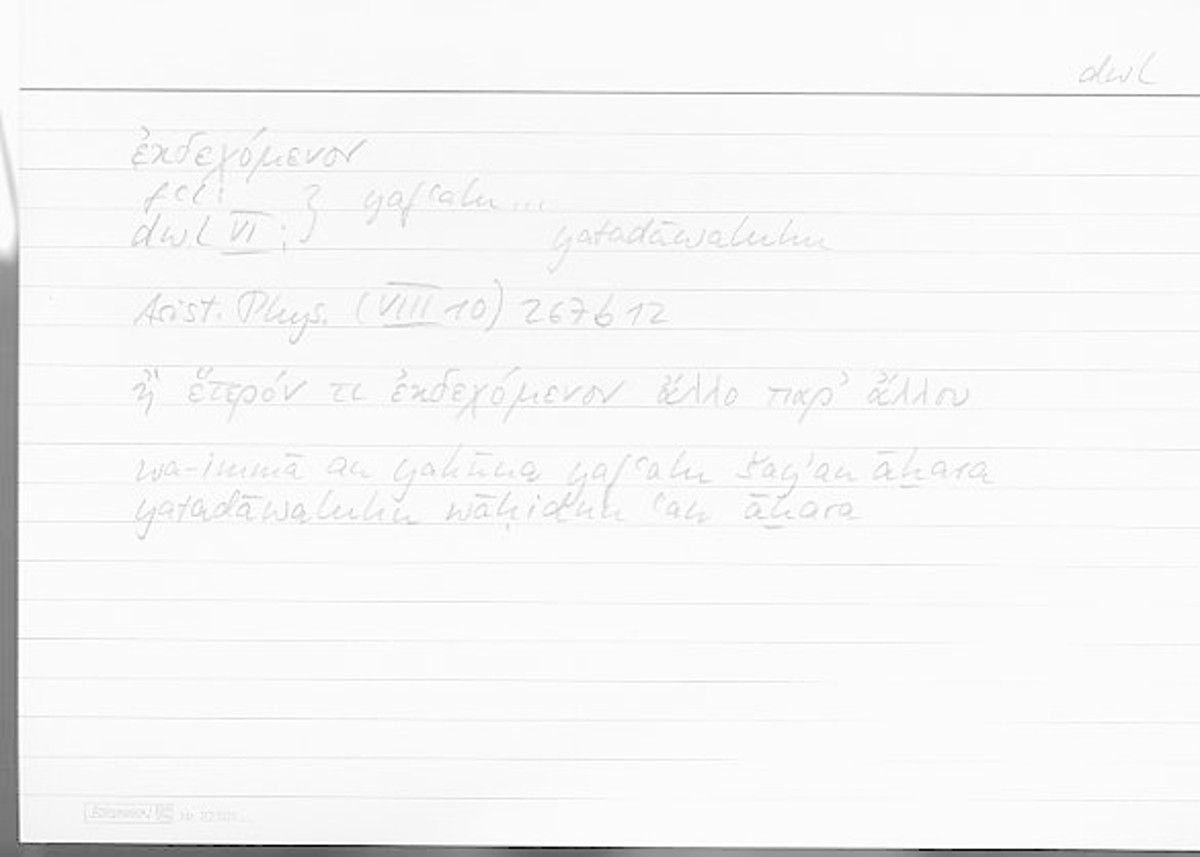 dwl
ἐκδεχόμενον
fʿl: } yafʿalu ...
dwl VI : yatadāwaluhu
Arist. Phys. (VIII 10) 267b12
ἢ ἕτερόν τι ἐκδεχόμενον ἄλλο παρ' ἄλλου
wa-immā an yakūna yafʿalu šayʾan āḫara
yatadāwaluhu wāḥidun ʿan āḫara